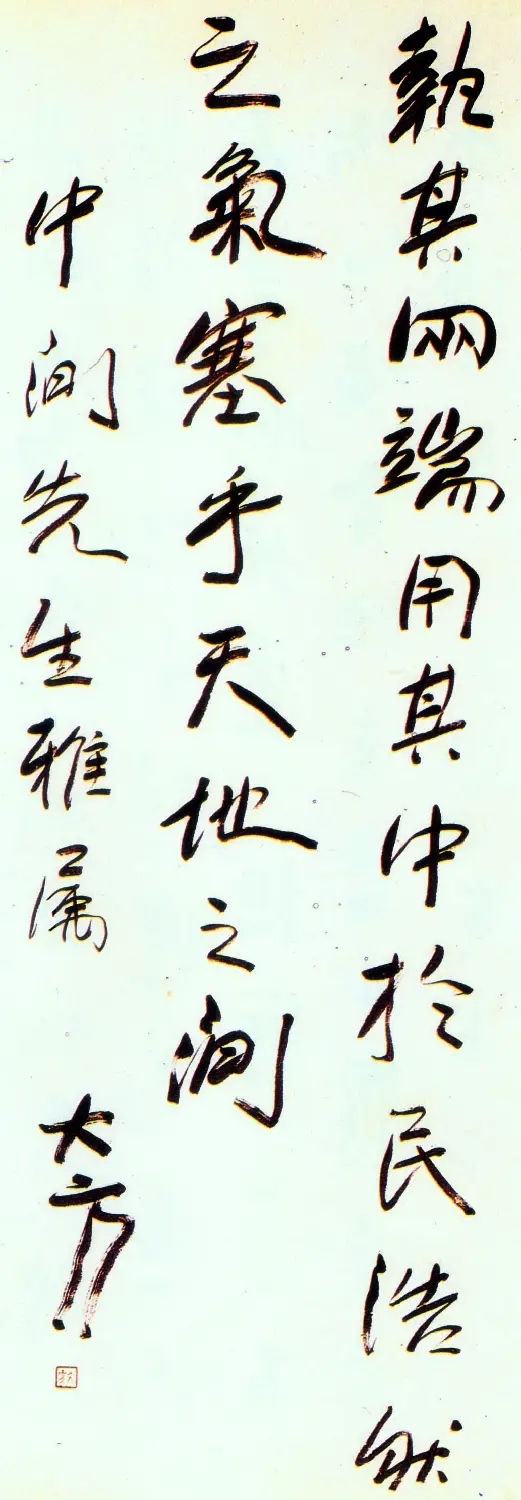 執其兩端用其中於民浩然
之氣塞乎天地之間
中間先生雅屬
大方